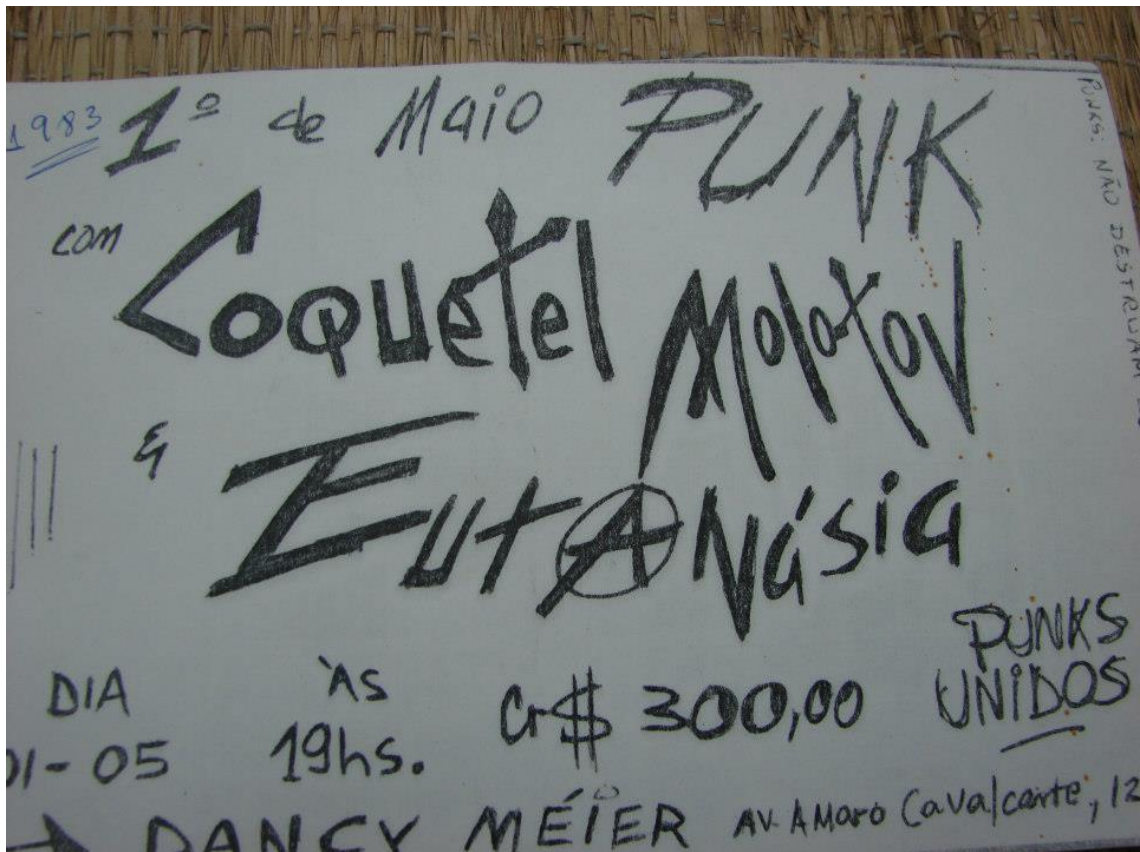 1983
1º de Maio PUNK
com
Coquetel Molotov
&
EutAnásia
PUNKS UNIDOS
DIA 01-05
ÀS 19hs.
Cr$ 300,00
DANCY MÉIER AV. AMARO Cavalcante, 12
PUNKS: NÃO DESTRUAM